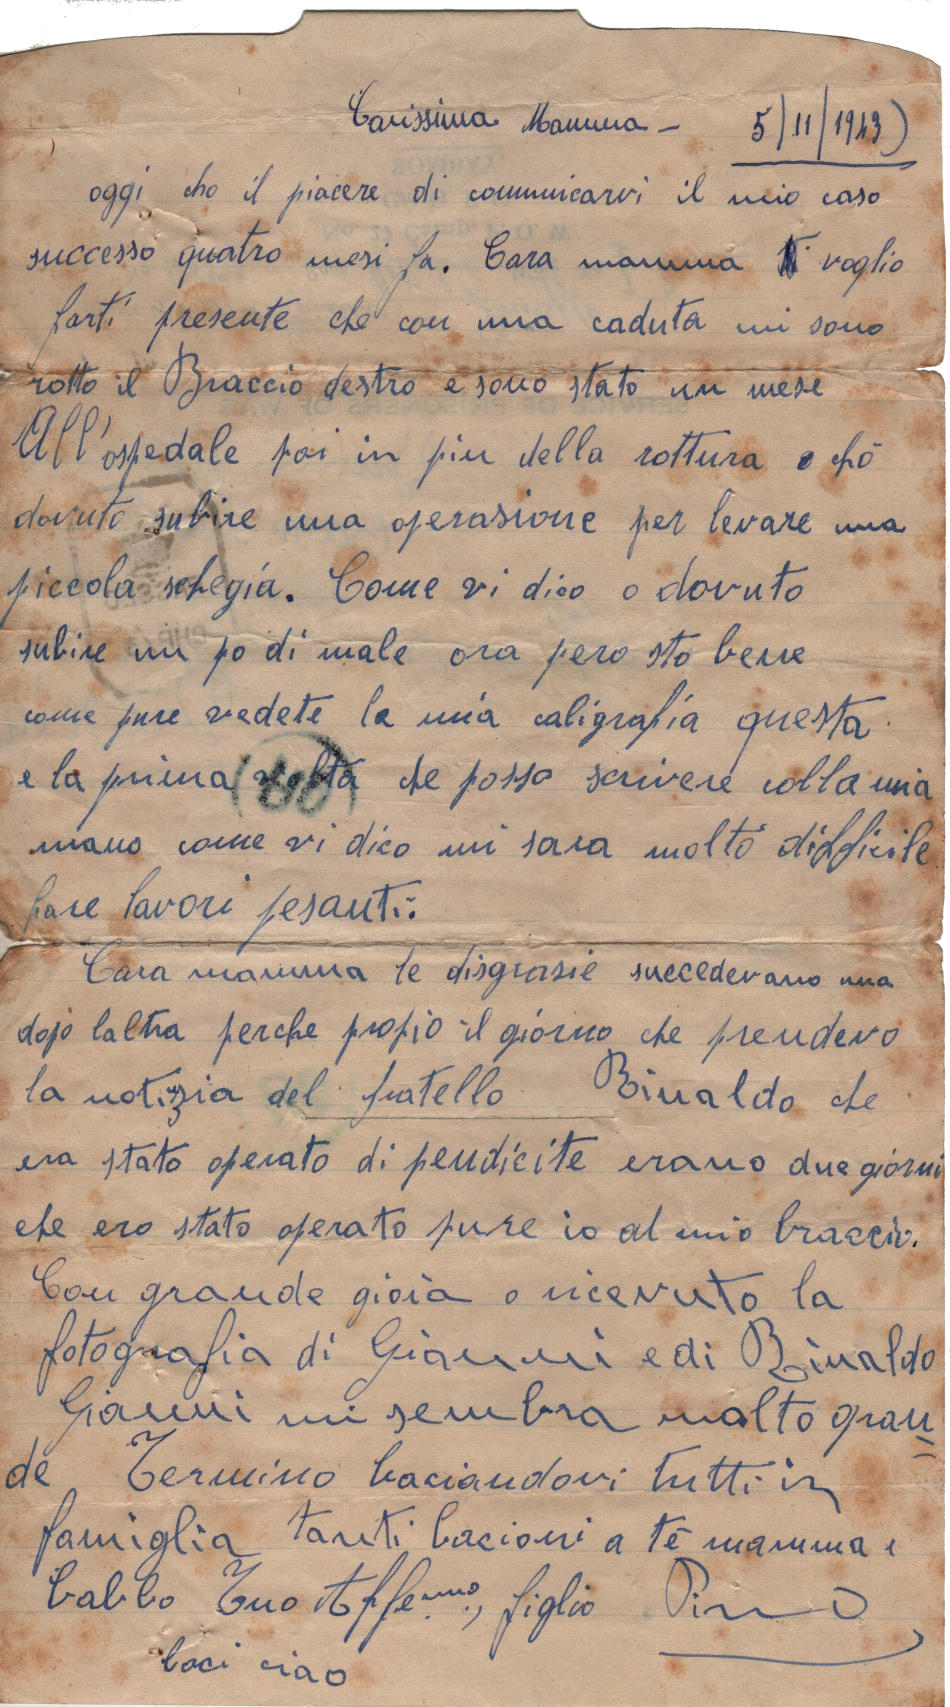 Carissima Mamma - 5/11/1943)
oggi cho il piacere di communicarvi il mio caso
successo quatro mesi fa. Cara mamma ti voglio
farti presente che con una caduta mi sono
rotto il Braccio destro e sono stato un mese
All'ospedale poi in piu della rottura o chó
dovuto subire una operasione per levare una
piccola schegia. Come vi dico o dovuto
subire un po di male ora pero sto bene
come pure vedete la mia caligrafia questa
e la prima volta che posso scrivere colla mia
mano come vi dico mi sara molto difficile
fare lavori pesanti.
Cara mamma le disgrasie succedevano una
dopo laltra perche propio il giorno che prendevo
la notizia del fratello Rinaldo che
era stato operato di pendicite erano due giorni
che ero stato operato pure io al mio braccio.
Con grande gioia o ricevuto la
fotografia di Gianni e di Rinaldo
Gianni mi sembra molto gran=
de Termino baciandovi tutti in
famiglia tanti bacioni a te mamma e
babbo Tuo Affe.mo, figlio Pino
baci ciao